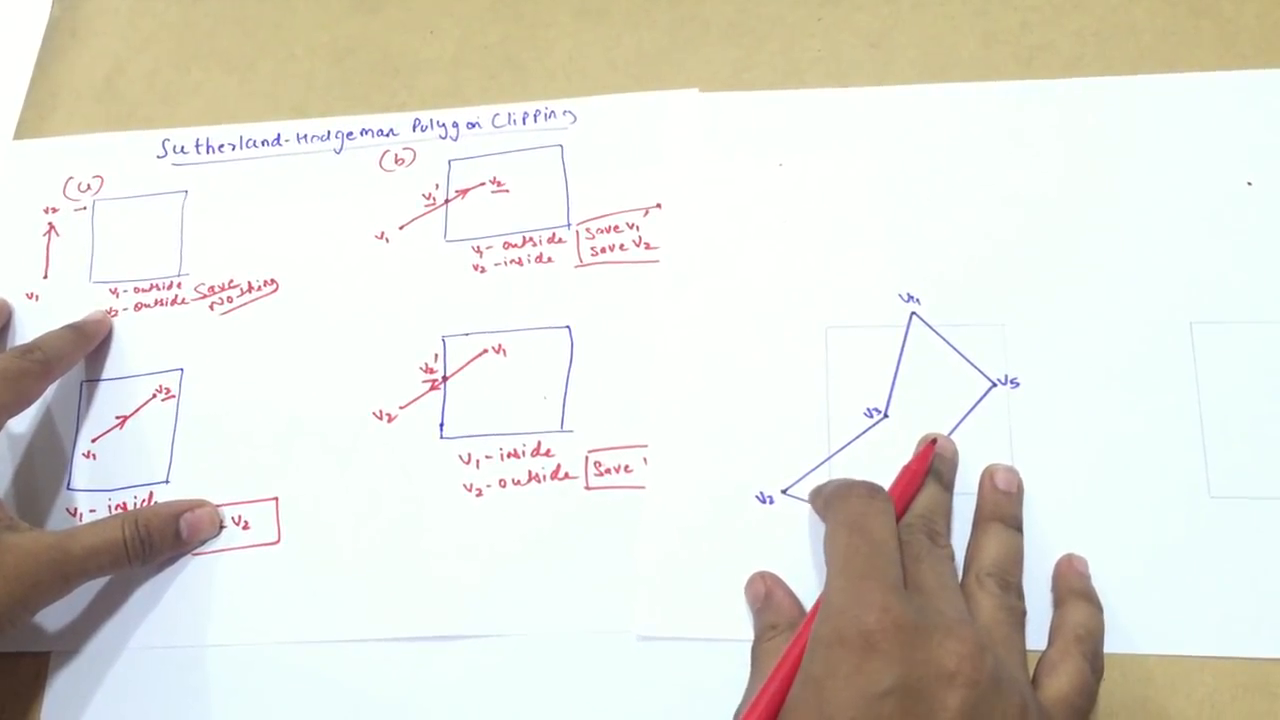 Sutherland-Hodgeman Polygon Clipping
(a)
v2
v1
v1 - outside
v2 - outside
Save Nothing
(b)
v1'
v2
v1
v1 - outside
v2 - inside
Save v1'
Save v2
v2
v1
v1 - inside
v2
v2'
v1
v2
v1 - inside
v2 - outside
Save '
v4
v5
v3
v2